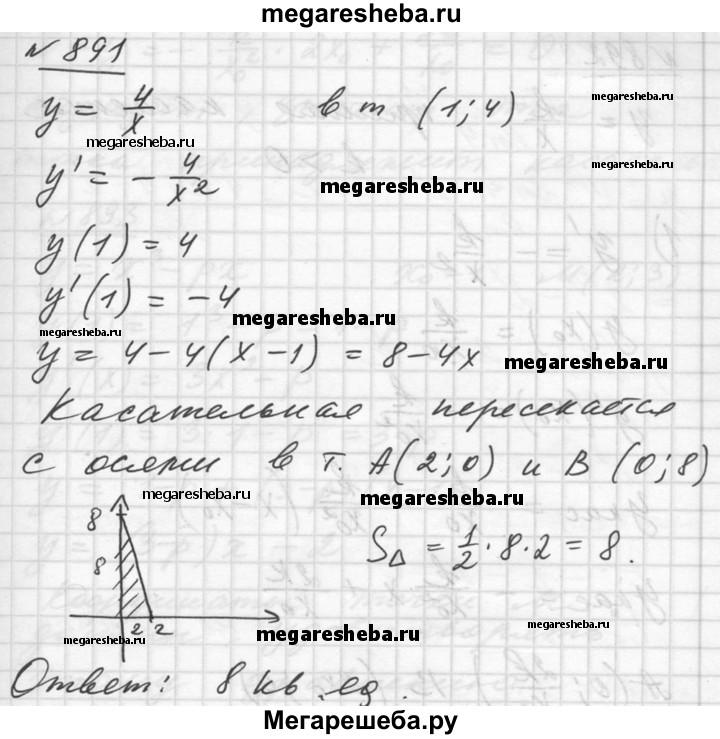 megaresheba.ru
№ 891
y = 4/x в т (1; 4) megaresheba.ru
megaresheba.ru
y' = - 4/x² megaresheba.ru megaresheba.ru
y(1) = 4
y'(1) = -4 megaresheba.ru
megaresheba.ru
y = 4-4(x-1) = 8-4x megaresheba.ru
Касательная пересекается
с осями в т. A(2; 0) и B (0; 8)
megaresheba.ru megaresheba.ru
8
8 S△ = 1/2 · 8 · 2 = 8.
2 2
megaresheba.ru megaresheba.ru megaresheba.ru
Ответ: 8 кв. ед.
Мегарешеба.ру